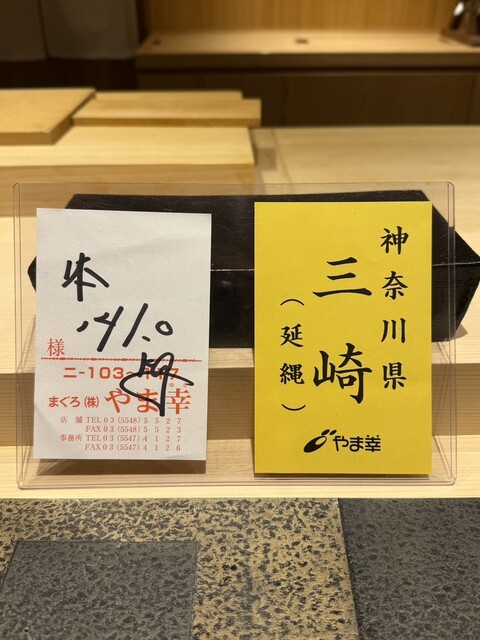 本
141.0
様
ニ-103
まぐろ(株) やま幸
店 舗 TEL 03 (5548) 5527
FAX 03 (5548) 5523
事務所 TEL 03 (5547) 4127
FAX 03 (5547) 4126
神奈川県
三崎
(延縄)
やま幸